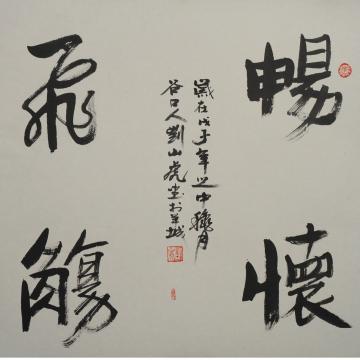 暢懷
歲在戊子年之中穐月
谷口人劉山虎書於羊城
飛觴